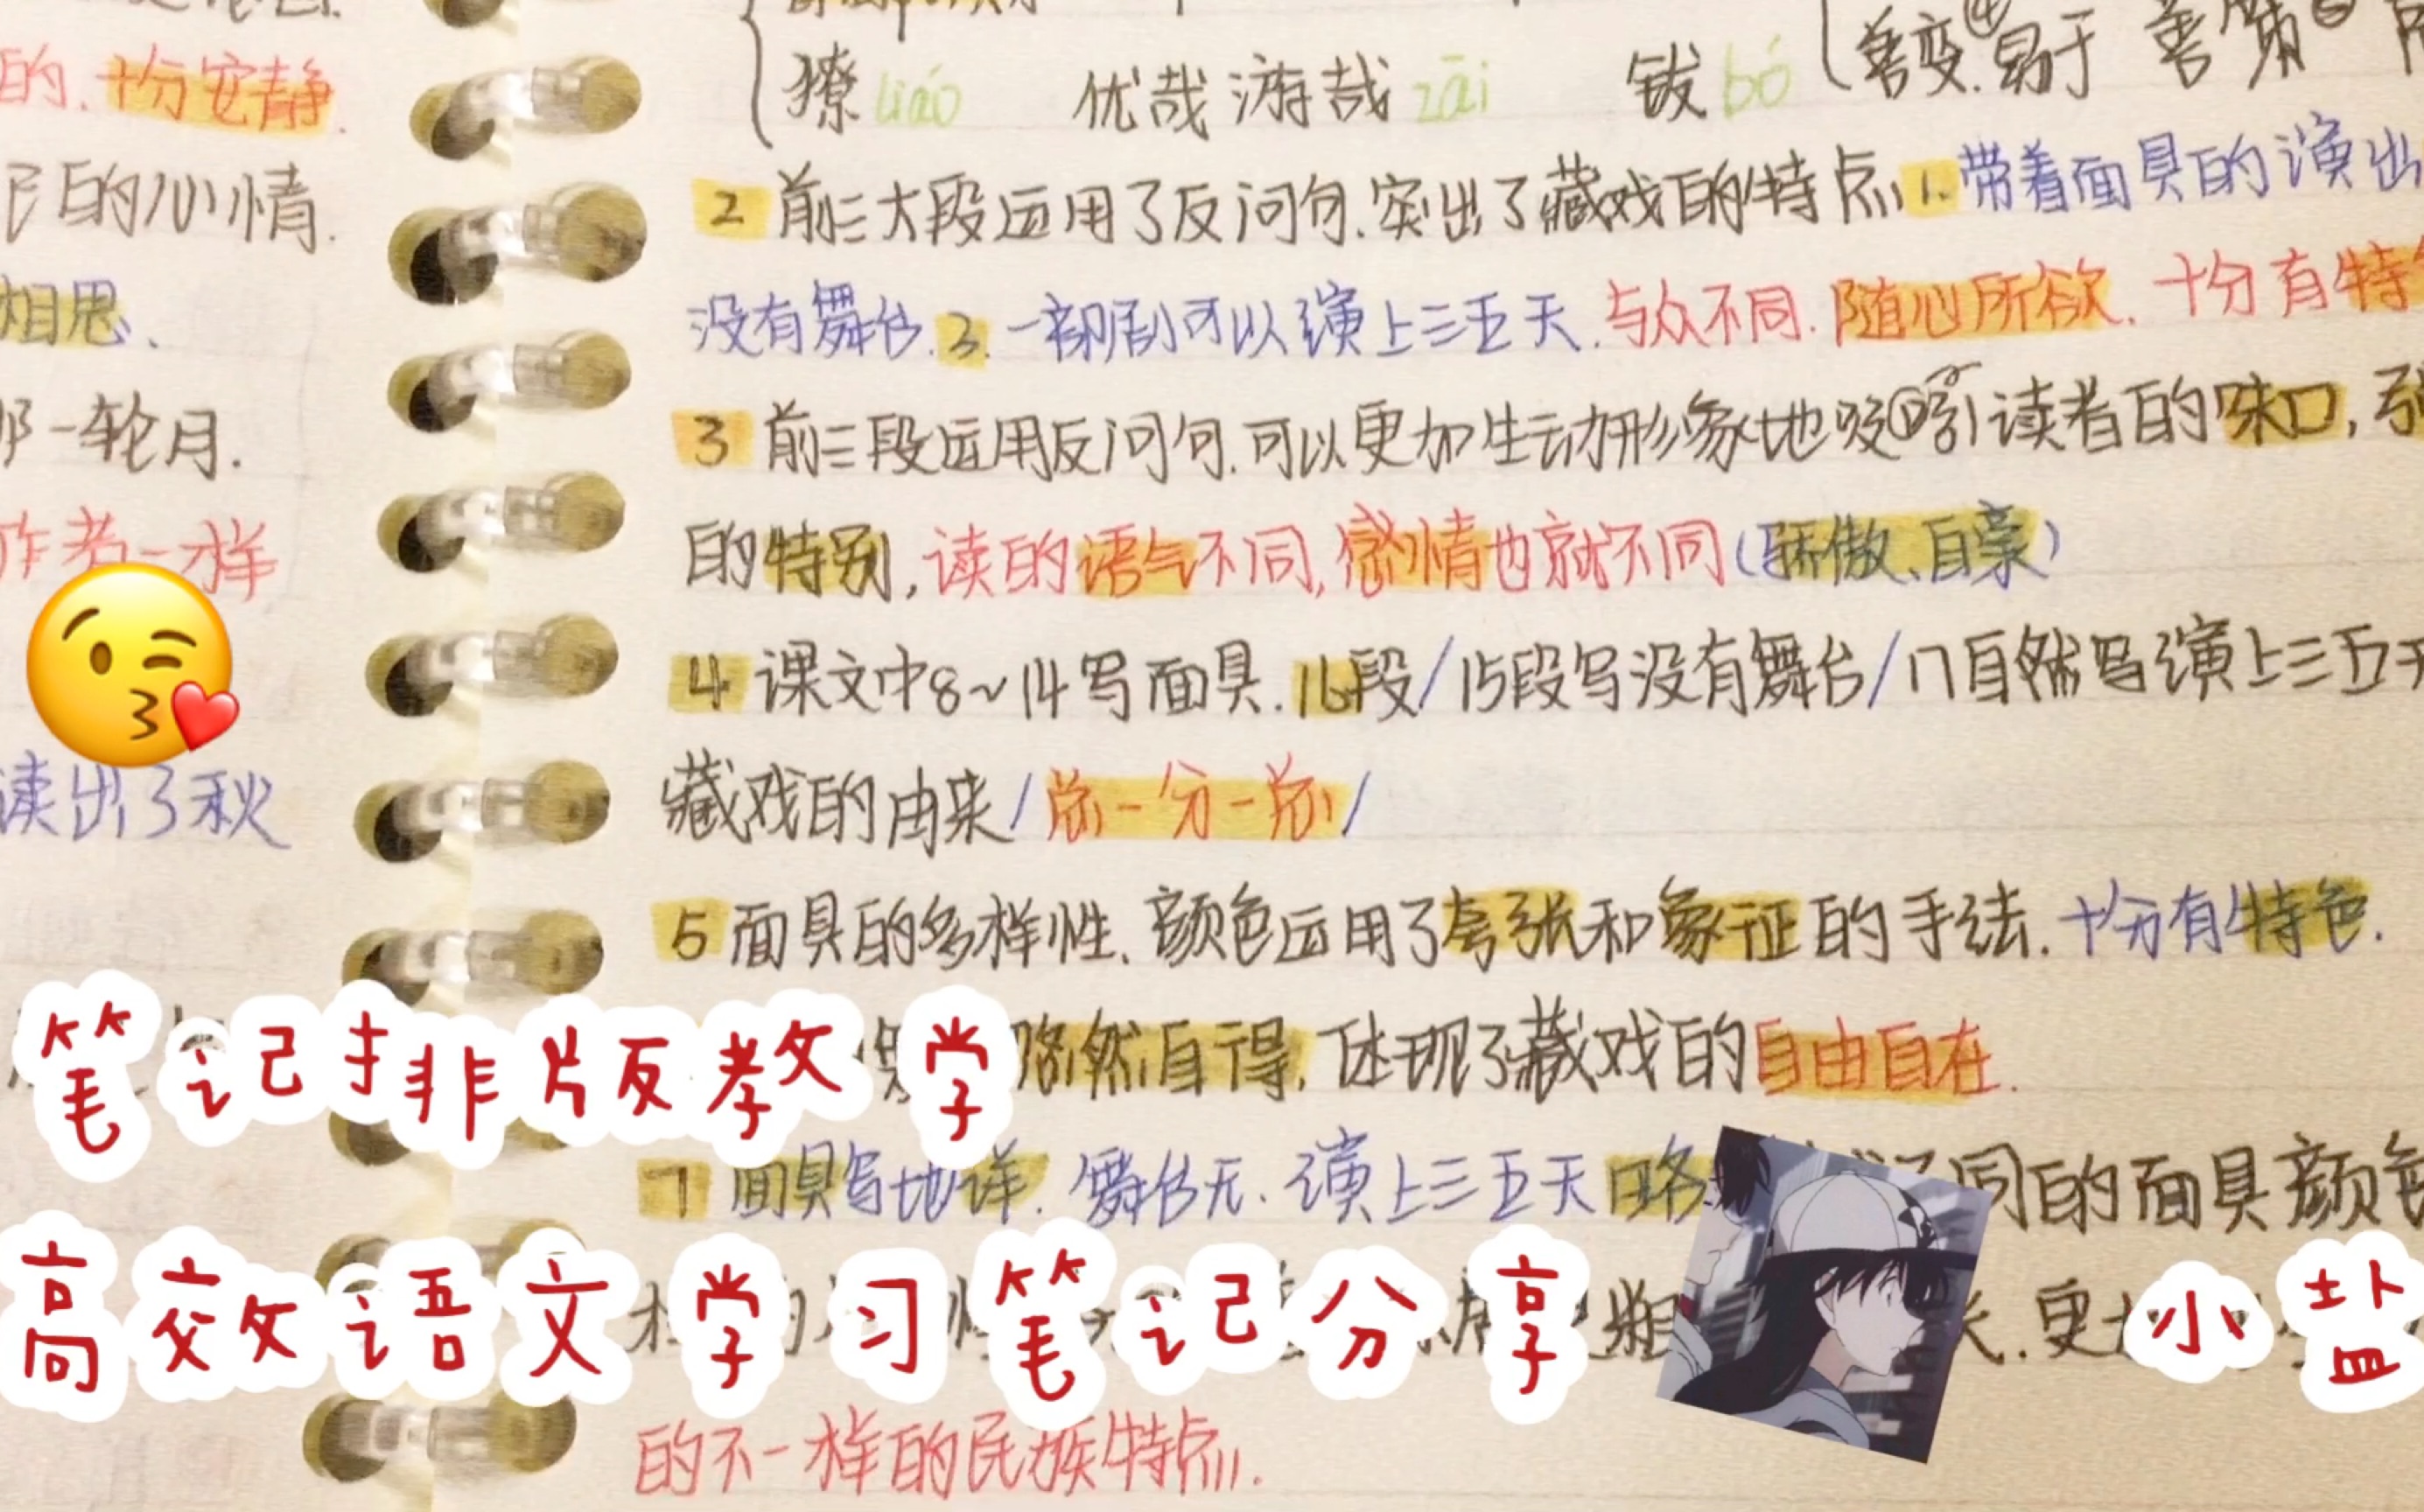 的.十分安静.
的心情.
相思、
那一轮月.
作者一样
读出了秋
獠liáo 优哉游哉zāi 钹bó
善变.④易于
2 前三大段运用了反问句.突出了藏戏的特点 1.带着面具的演出
没有舞台.3.一部剧可以演上三五天.与众不同.随心所欲.十分有特
3 前三段运用反问句.可以更加生动形象地吸引读者的味口,
的特别,读的语气不同,感情也就不同(骄傲、自豪)
4 课文中8~14写面具.16段/15段写没有舞台/17自然写演上三五天
藏戏的由来/总-分-总/
5 面具的多样性、颜色运用了夸张和象征的手法.十分有特色.
然自得,体现了藏戏的自由自在.
7 面具写地详.舞台无.演上三五天略 同的面具颜色
更
的不一样的民族特点.
笔记排版教学
高效语文学习笔记分享 小盐